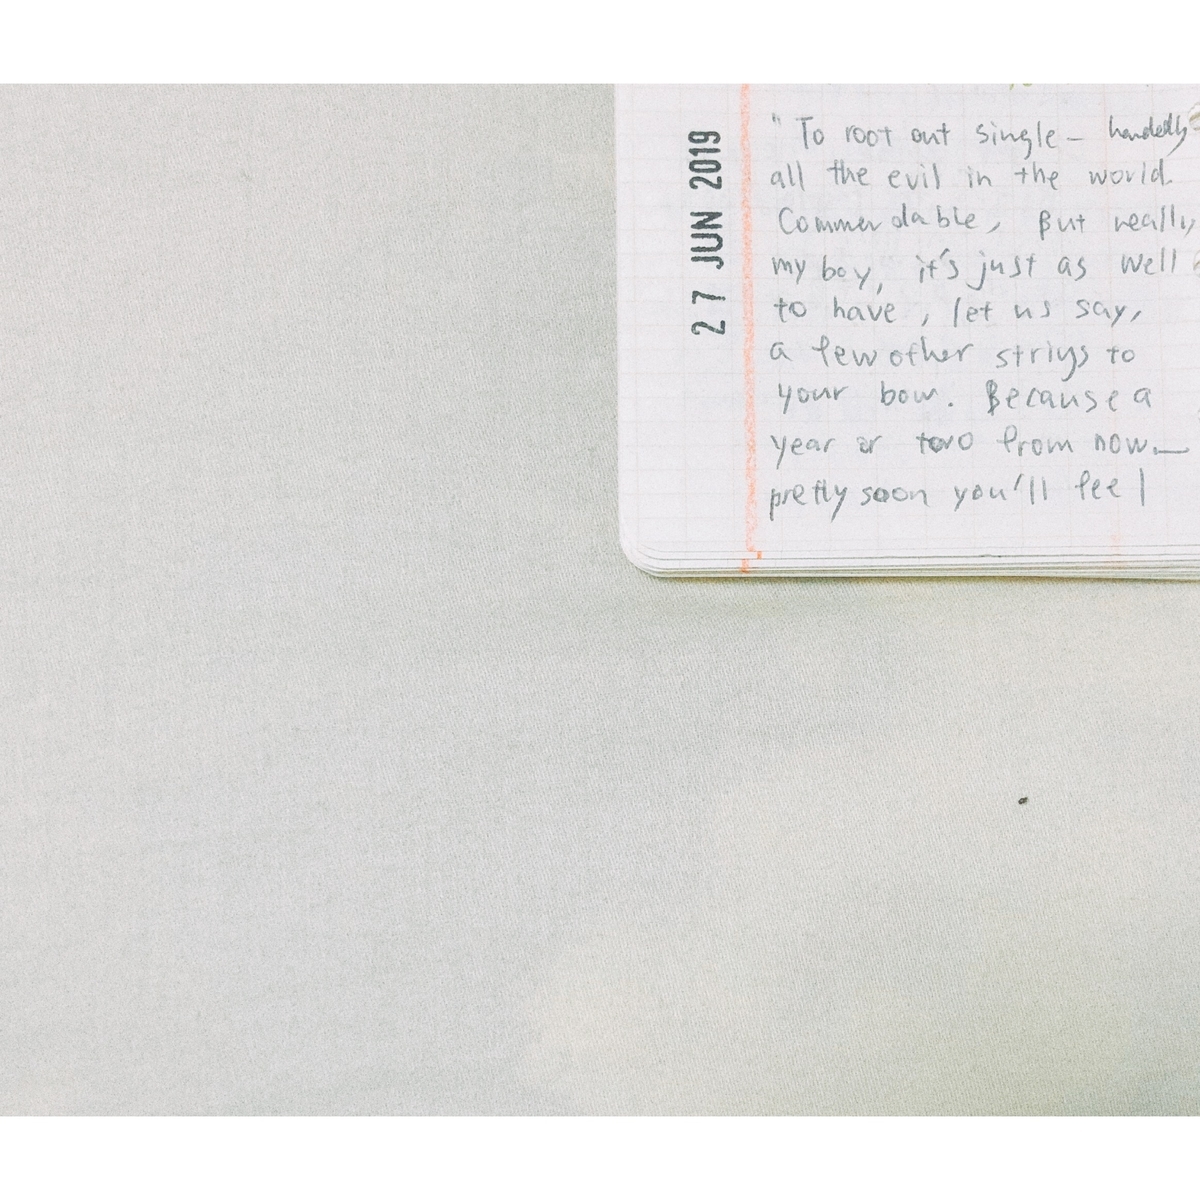 27 JUN 2019
" To root out single- handedly
all the evil in the world.
Commendable, But really,
my boy, it's just as well
to have, let us say,
a few other strigs to
your bow. Because a
year or two from now—
pretly soon you'll feel